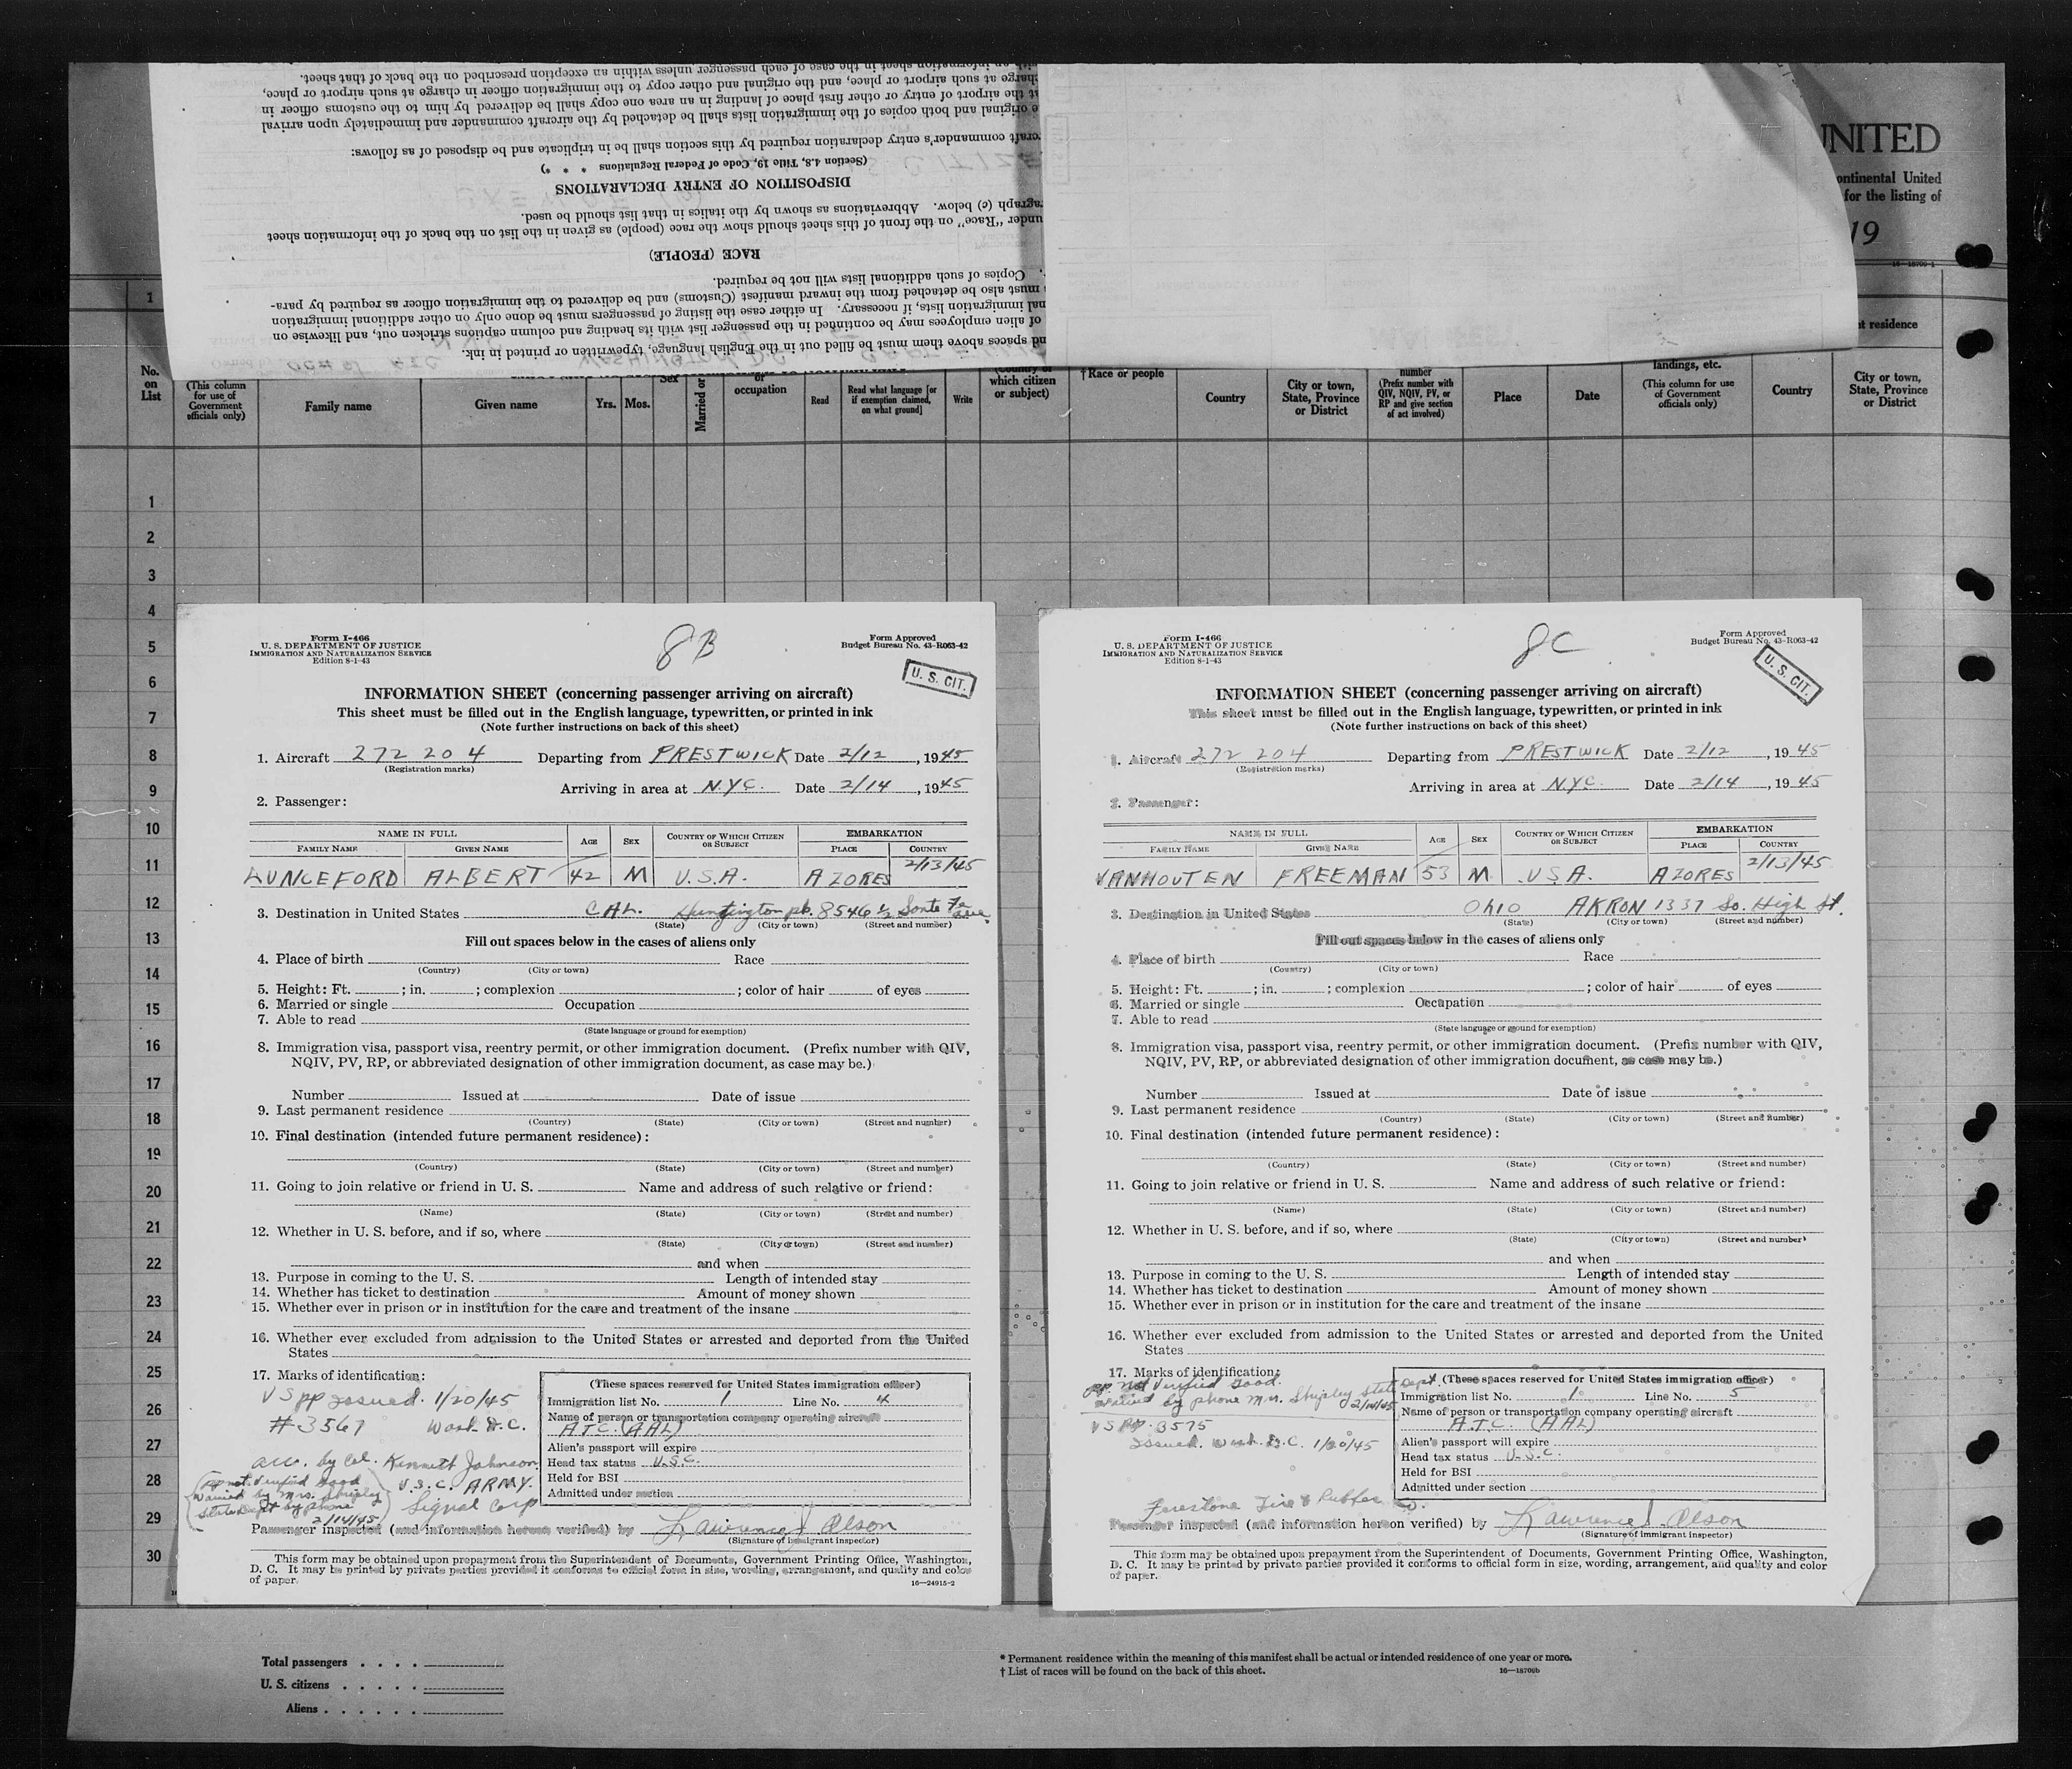 with an information sheet in the case of each passenger unless within an exception prescribed on the back of that sheet.
charge at such airport or place, and the original and other copy to the immigration officer in charge at such airport or place,
at the airport of entry or other first place of landing in an area one copy shall be delivered by him to the customs officer in
e original and both copies of the immigration lists shall be detached by the aircraft commander and immediately upon arrival
craft commander's entry declaration required by this section shall be in triplicate and be disposed of as follows:
(Section 4.8, Title 19, Code of Federal Regulations * * *)
DISPOSITION OF ENTRY DECLARATIONS
agraph (c) below. Abbreviations as shown by the italics in that list should be used.
under "Race" on the front of this sheet should show the race (people) as given in the list on the back of the information sheet
RACE (PEOPLE)
. Copies of such additional lists will not be required.
must also be detached from the inward manifest (Customs) and be delivered to the immigration officer as required by para-
nal immigration lists, if necessary. In either case the listing of passengers must be done only on other additional immigration
of alien employees may be continued in the passenger list with its heading and column captions stricken out, and likewise on
nd spaces above them must be filled out in the English language, typewritten or printed in ink.
UNITED
ontinental United
for the listing of
19
16—18709-1
1
t residence
No. on List
(This column for use of Government officials only)
Family name
Given name
Yrs.
Mos.
Sex
Married or
or occupation
Read
Read what language [or if exemption claimed, on what ground]
Write
(Country of which citizen or subject)
†Race or people
Country
City or town, State, Province or District
number (Prefix number with QIV, NQIV, PV, or RP and give section of act involved)
Place
Date
landings, etc.
(This column for use of Government officials only)
Country
City or town, State, Province or District
1
2
3
4
5
6
7
8
9
10
11
12
13
14
15
16
17
18
19
20
21
22
23
24
25
26
27
28
29
30
Form I-466
U. S. DEPARTMENT OF JUSTICE
IMMIGRATION AND NATURALIZATION SERVICE
Edition 8-1-43
8B
Form Approved
Budget Bureau No. 43-R063-42
U. S. CIT.
INFORMATION SHEET (concerning passenger arriving on aircraft)
This sheet must be filled out in the English language, typewritten, or printed in ink
(Note further instructions on back of this sheet)
1. Aircraft 272 204 Departing from PRESTWICK Date 2/12, 1945
(Registration marks)
Arriving in area at N.Y.C. Date 2/14, 1945
2. Passenger:
NAME IN FULL AGE SEX COUNTRY OF WHICH CITIZEN OR SUBJECT EMBARKATION
FAMILY NAME GIVEN NAME PLACE COUNTRY
LUNCEFORD ALBERT 42 M U.S.A. AZORES 2/13/45
3. Destination in United States CAL. Huntington pk. 8546 1/2 Santa Fe ave.
(State) (City or town) (Street and number)
Fill out spaces below in the cases of aliens only
4. Place of birth Race
(Country) (City or town)
5. Height: Ft. ; in. ; complexion ; color of hair of eyes
6. Married or single Occupation
7. Able to read
(State language or ground for exemption)
8. Immigration visa, passport visa, reentry permit, or other immigration document. (Prefix number with QIV,
NQIV, PV, RP, or abbreviated designation of other immigration document, as case may be.)
Number Issued at Date of issue
9. Last permanent residence
(Country) (State) (City or town) (Street and number)
10. Final destination (intended future permanent residence):
(Country) (State) (City or town) (Street and number)
11. Going to join relative or friend in U. S. Name and address of such relative or friend:
(Name) (State) (City or town) (Street and number)
12. Whether in U. S. before, and if so, where
(State) (City or town) (Street and number)
and when
13. Purpose in coming to the U. S. Length of intended stay
14. Whether has ticket to destination Amount of money shown
15. Whether ever in prison or in institution for the care and treatment of the insane
16. Whether ever excluded from admission to the United States or arrested and deported from the United
States
17. Marks of identification:
VSpp issued. 1/20/45
#3567 Wash. D.C.
by Col. Kenneth Johnson
U.S.C. ARMY.
Signal Corp
(pp not verified Good
waived by Mrs. Shipley
State Dept by phone
2/14/45)
(These spaces reserved for United States immigration officer)
Immigration list No. 1 Line No. 4
Name of person or transportation company operating aircraft
A.T.C. (AAL)
Alien's passport will expire
Head tax status U.S.C.
Held for BSI
Admitted under section
Passenger inspected (and information hereon verified) by Lawrence J Olson
(Signature of immigrant inspector)
This form may be obtained upon prepayment from the Superintendent of Documents, Government Printing Office, Washington,
D. C. It may be printed by private parties provided it conforms to official form in size, wording, arrangement, and quality and color
of paper.
16—24915-2
Form I-466
U. S. DEPARTMENT OF JUSTICE
IMMIGRATION AND NATURALIZATION SERVICE
Edition 8-1-43
8C
Form Approved
Budget Bureau No. 43-R063-42
U. S. CIT.
INFORMATION SHEET (concerning passenger arriving on aircraft)
This sheet must be filled out in the English language, typewritten, or printed in ink
(Note further instructions on back of this sheet)
1. Aircraft 272 204 Departing from PRESTWICK Date 2/12, 1945
(Registration marks)
Arriving in area at N.Y.C. Date 2/14, 1945
2. Passenger:
NAME IN FULL AGE SEX COUNTRY OF WHICH CITIZEN OR SUBJECT EMBARKATION
FAMILY NAME GIVEN NAME PLACE COUNTRY
VANHOUTEN FREEMAN 53 M. U.S.A. AZORES 2/13/45
3. Destination in United States Ohio AKRON 1337 So. High St.
(State) (City or town) (Street and number)
Fill out spaces below in the cases of aliens only
4. Place of birth Race
(Country) (City or town)
5. Height: Ft. ; in. ; complexion ; color of hair of eyes
6. Married or single Occupation
7. Able to read
(State language or ground for exemption)
8. Immigration visa, passport visa, reentry permit, or other immigration document. (Prefix number with QIV,
NQIV, PV, RP, or abbreviated designation of other immigration document, as case may be.)
Number Issued at Date of issue
9. Last permanent residence
(Country) (State) (City or town) (Street and number)
10. Final destination (intended future permanent residence):
(Country) (State) (City or town) (Street and number)
11. Going to join relative or friend in U. S. Name and address of such relative or friend:
(Name) (State) (City or town) (Street and number)
12. Whether in U. S. before, and if so, where
(State) (City or town) (Street and number)
and when
13. Purpose in coming to the U. S. Length of intended stay
14. Whether has ticket to destination Amount of money shown
15. Whether ever in prison or in institution for the care and treatment of the insane
16. Whether ever excluded from admission to the United States or arrested and deported from the United
States
17. Marks of identification:
pp. not verified Good.
waived by phone Mrs. Shipley State Dept.
2/14/45
VSPP. 3575
Issued. Wash. D.C. 1/20/45
Firestone Tire & Rubber Co.
(These spaces reserved for United States immigration officer)
Immigration list No. 1 Line No. 5
Name of person or transportation company operating aircraft
A.T.C. (AAL)
Alien's passport will expire
Head tax status U.S.C.
Held for BSI
Admitted under section
Passenger inspected (and information hereon verified) by Lawrence J. Olson
(Signature of immigrant inspector)
This form may be obtained upon prepayment from the Superintendent of Documents, Government Printing Office, Washington,
D. C. It may be printed by private parties provided it conforms to official form in size, wording, arrangement, and quality and color
of paper.
Total passengers . . . .
U. S. citizens . . . . .
Aliens . . . . . . .
* Permanent residence within the meaning of this manifest shall be actual or intended residence of one year or more.
† List of races will be found on the back of this sheet.
16—18709b